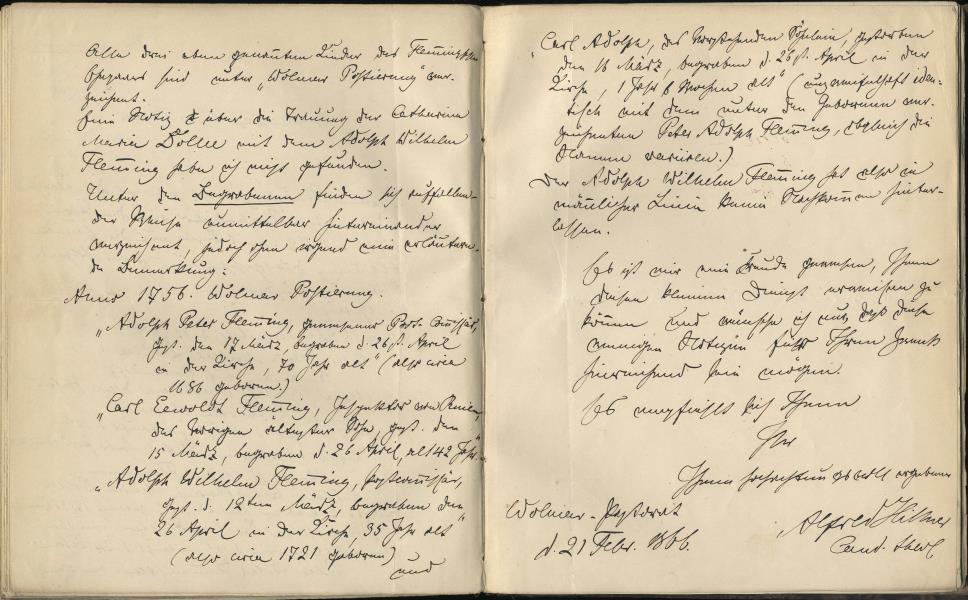 Alle drei eben genannten Kinder des Flemingschen
Ehepaars sind unter "Wolmar Postierung" ver-
zeichnet.
Eine Notiz über die Trauung der Catharina
Maria Dolle mit dem Adolph Wilhelm
Fleming habe ich nicht gefunden.
Unter den Begrabenen finden sich auffallen-
der Weise unmittelbar hintereinander
verzeichnet, jedoch ohne irgend eine erläutern-
de Bemerkung:
Anno 1756. Wolmar Postierung.
"Adolph Peter Fleming, gewesener Post Comissär,
gest. den 17 März, begraben d. 26st. April
in der Kirche, 70 Jahr alt" (also circa
1686 geboren.)
"Carl Eewoldt Fleming, Inspektor von
des Vorigen ältester Sohn, gest. den
15 März, begraben d. 26 April, alt 42 Jahr."
"Adolph Wilhelm Fleming, Postcomissär,
gest. d. 12ten März, begraben den
26 April in der Kirche, 35 Jahr alt"
(also circa 1721 geboren)
und
"Carl Adolph, des Vorstehenden Söhnlein, gestorben
den 16 März, begraben d. 26st. April in der
Kirche, 1 Jahr 6 Wochen alt" (unzweifelhaft iden-
tisch mit dem unter den Geborenen ver-
zeichneten Peter Adolph Fleming, obgleich die
Namen variiren.)
Der Adolph Wilhelm Fleming hat also in
männlicher Linie keine Nachkommen hinter-
lassen.
Es ist mir eine Freude gewesen, Ihnen
diesen kleinen Dienst erweisen zu
können und wünsche ich nur daß diese
wenigen Notizen für Ihren Zweck
hinreichend sein mögen.
Es empfiehlt sich Ihnen
Ihr
Ihnen hochachtungsvoll ergebener
Wolmar-Pastorat
Alfred Hillner
d. 21 Febr. 1866.
Cand. theol.